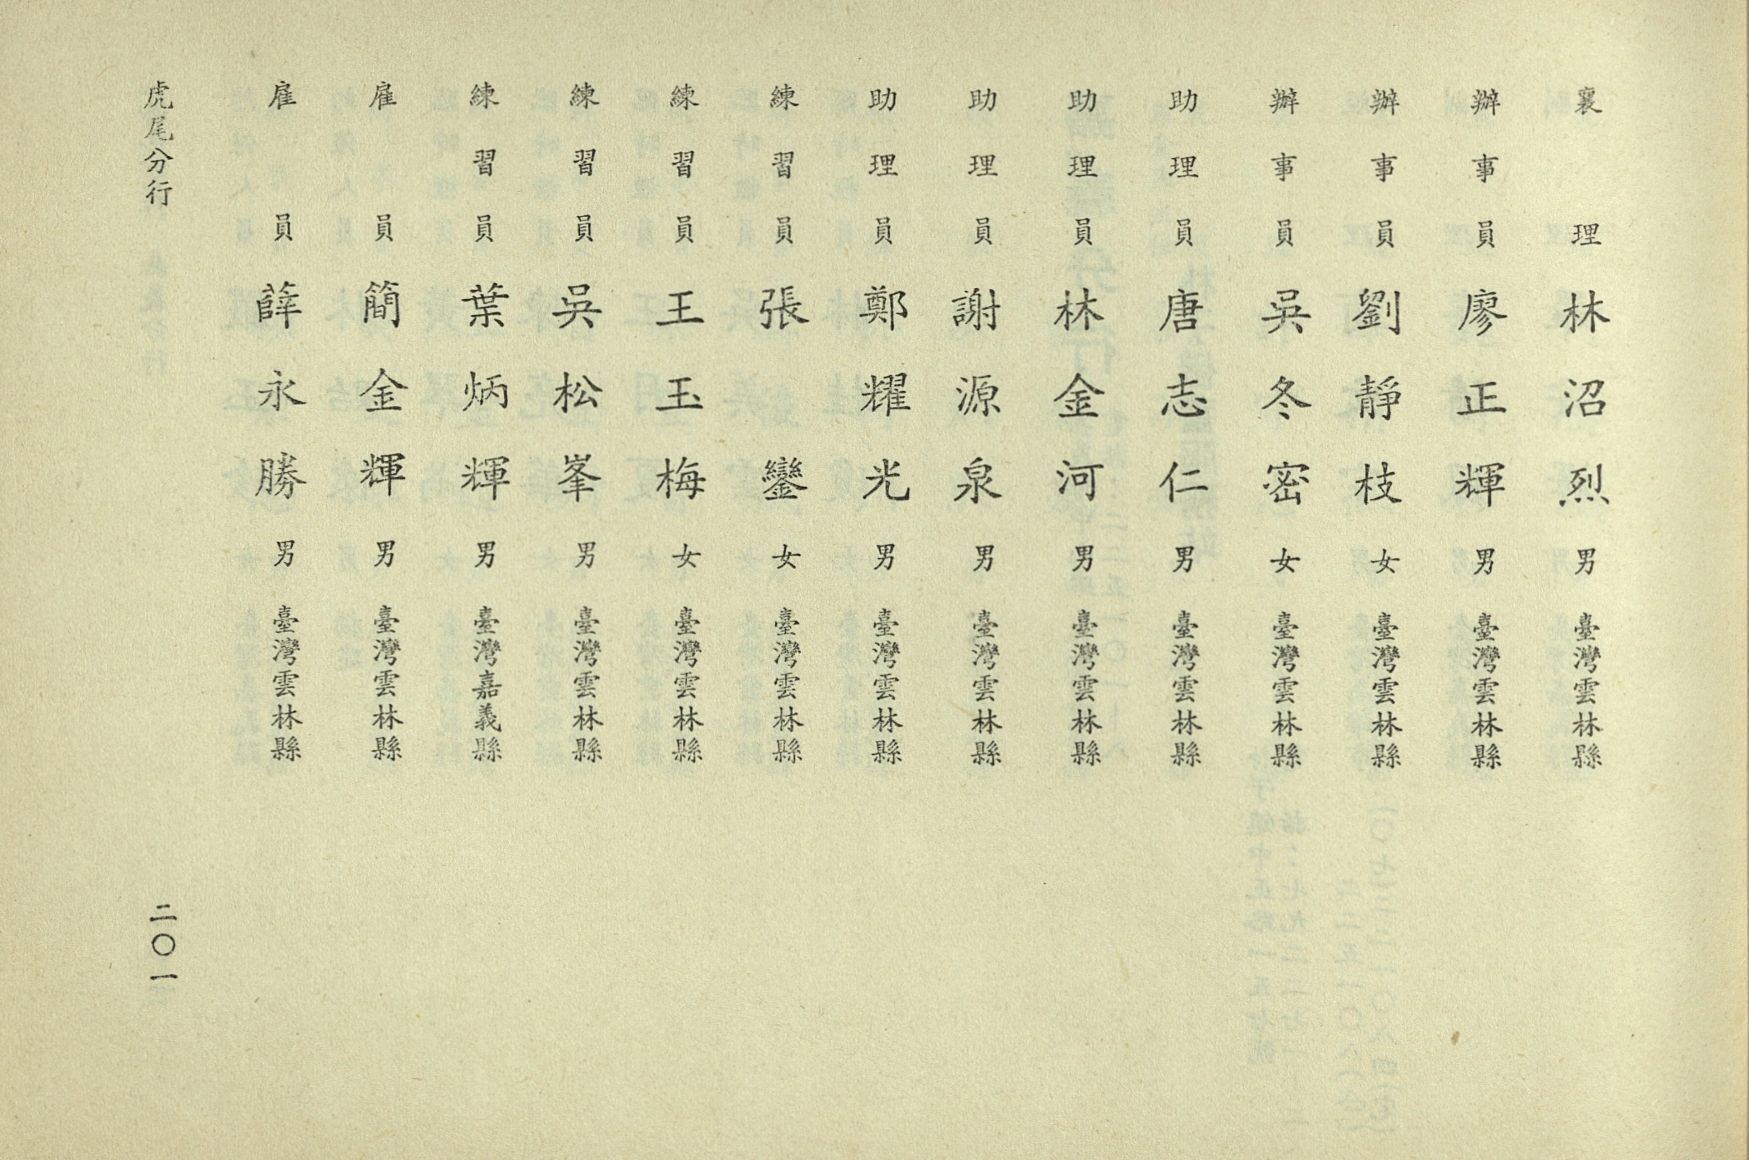 襄理 林沼烈 男 臺灣雲林縣
辦事員 廖正輝 男 臺灣雲林縣
辦事員 劉靜枝 女 臺灣雲林縣
辦事員 吳冬密 女 臺灣雲林縣
助理員 唐志仁 男 臺灣雲林縣
助理員 林金河 男 臺灣雲林縣
助理員 謝源泉 男 臺灣雲林縣
助理員 鄭耀光 男 臺灣雲林縣
練習員 張鑾 女 臺灣雲林縣
練習員 王玉梅 女 臺灣雲林縣
練習員 吳松峯 男 臺灣雲林縣
練習員 葉炳輝 男 臺灣嘉義縣
雇員 簡金輝 男 臺灣雲林縣
雇員 薛永勝 男 臺灣雲林縣
虎尾分行
二〇一